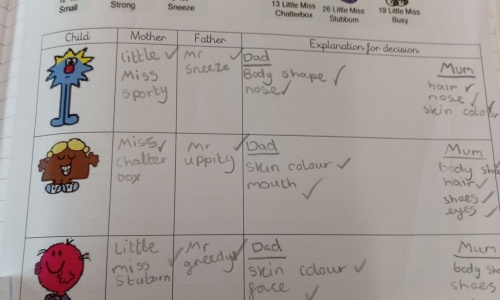 Small
Strong
Sneeze
13 Little Miss
Chatterbox
26 Little Miss
Stubburn
19 Little Miss
Busy
Child
Mother
Father
Explanation for decision
Little
Miss
sporty
Mr
Sneeze
Dad
Body shape
nose
Mum
hair
nose
skin colour
Miss
chatter
box
Mr
uppity
Dad
skin colour
mouth
Mum
body sha
hair
shoes
eyes
Little
miss
Stuborn
Mr
greedy
Dad
skin colour
face
Mum
body sha
shoes